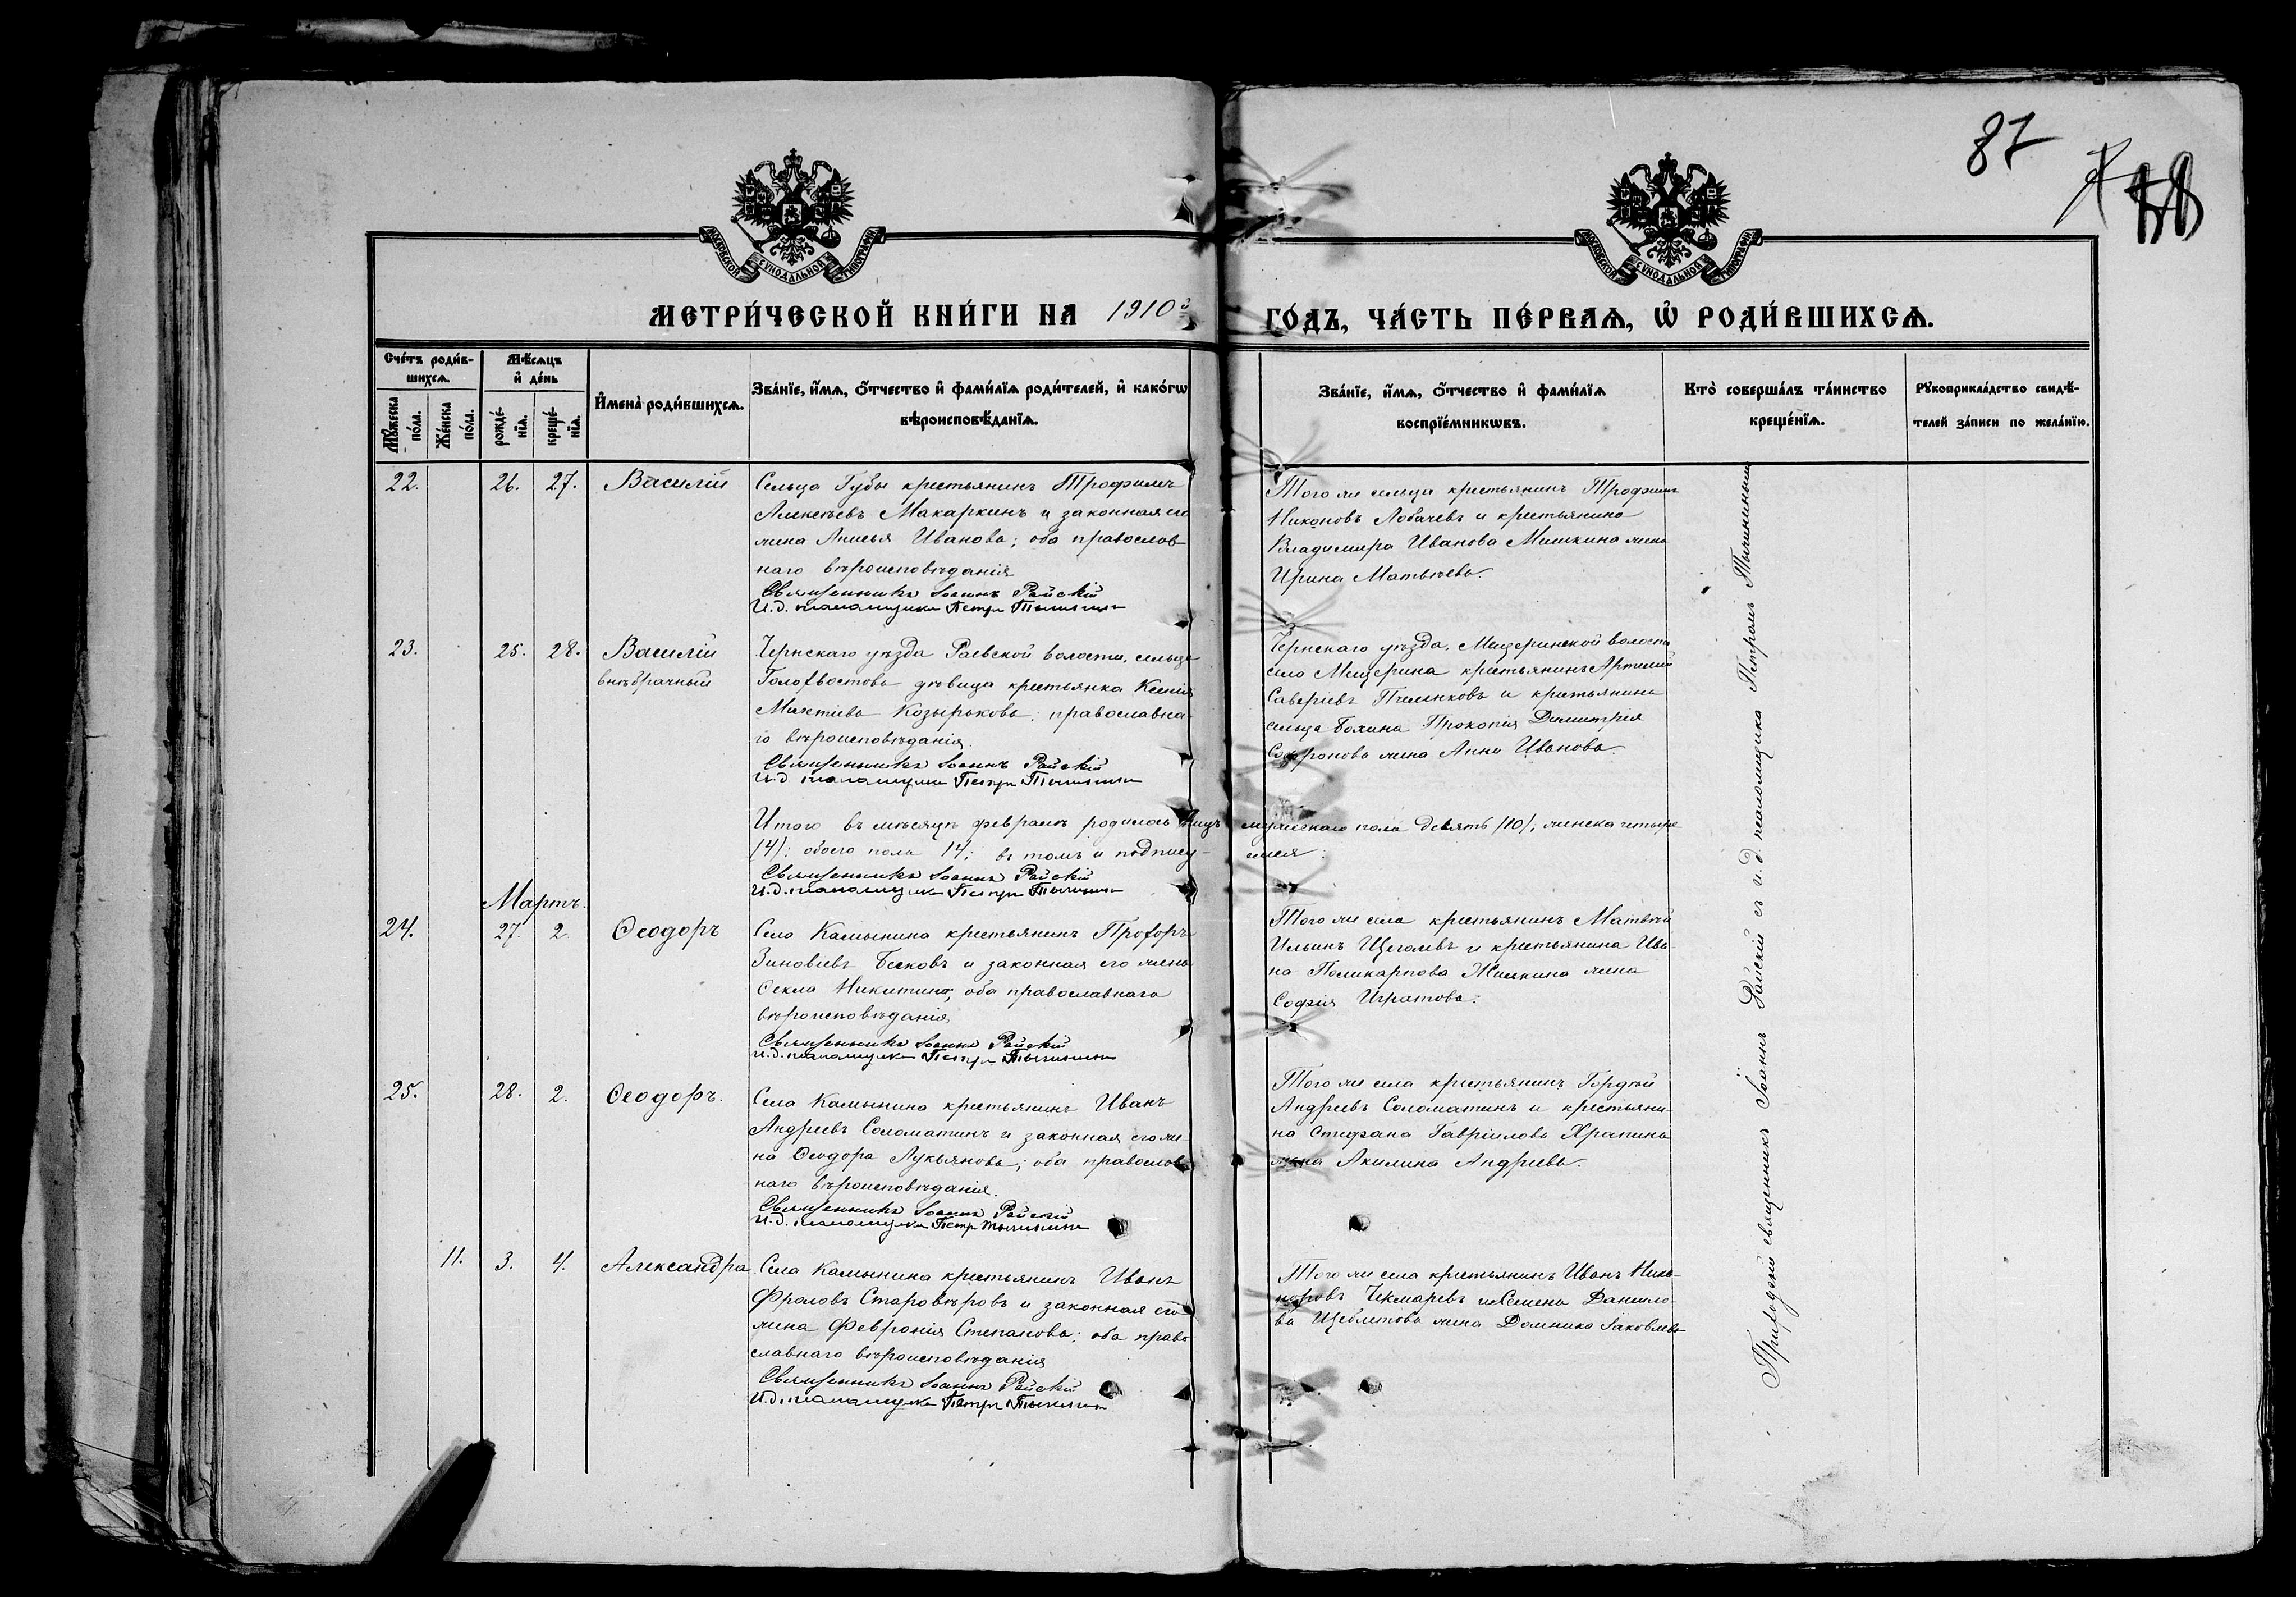 87
МОСКОВСКОЙ СѴНОДАЛЬНОЙ ТИПОГРАФІИ
МОСКОВСКОЙ СѴНОДАЛЬНОЙ ТИПОГРАФІИ
МЕТРИ́ЧЕСКОЙ КНИ́ГИ НА 1910й ГО́ДЪ, ЧА́СТЬ ПЕ́РВАѦ, Ѡ҆ РОДИ́ВШИХСѦ.
Сче́тъ роди́в-
шихсѧ.
Мꙋ́жеска
по́ла.
Же́нска
по́ла.
Мѣ́сѧцъ
и҆ де́нь
рожде́-
нїѧ.
креще́-
нїѧ.
И҆мена̀ роди́вшихсѧ.
Зва́нїе, и҆́мѧ, ѻ҆́тчество и҆ фами́лїѧ роди́телей, и҆ како́гѡ
вѣроисповѣ́данїѧ.
Зва́нїе, и҆́мѧ, ѻ҆́тчество и҆ фами́лїѧ
воспрїе́мникѡвъ.
Кто̀ соверша́лъ та́инство
креще́нїѧ.
Рꙋкоприкла́дство свидѣ́-
телей за́писи по жела́нїю.
22. 26. 27. Василій
Сельца Губы крестьянинъ Трофимъ
Алексѣевъ Макаркинъ и законная его
жена Анисья Иванова; оба православ-
наго вѣроисповѣданія
Священникъ Іоаннъ Райскій
И.д. псаломщика Петръ Тычининъ
Того же сельца крестьянинъ Трофимъ
Никоновъ Лобачевъ и крестьянина
Владимира Иванова Мишкина жена
Ирина Матвѣева.
23. 25. 28. Василій
внѣбрачный
Чернскаго уѣзда Раевской волости, сельца
Голохвостова дѣвица крестьянка Ксенія
Козырькова; православна-
го вѣроисповѣданія.
Священникъ Іоаннъ Райскій
И.д. псаломщика Петръ Тычининъ
Чернскаго уѣзда, Мещеринской волости
село Мещерина крестьянинъ Артемій
Саверіевъ Пчеленковъ и крестьянина
сельца Прокопія Димитрія
Софронова жена Анна Иванова.
Итого въ мѣсяцѣ февралѣ родилось лицъ мужескаго пола девять (10), женска четыре
(4); обоего пола 14; въ томъ и подпису- емся:
Священникъ Іоаннъ Райскій
И.д. псаломщика Петръ Тычининъ
Мартъ.
24. 27. 2. Ѳеодоръ
Село Камынина крестьянинъ Прохоръ
Зиновіевъ Бековъ и законная его жена
Ѳекла Никитина, оба православнаго
вѣроисповѣданія
Священникъ Іоаннъ Райскій
И.д. псаломщика Петръ Тычининъ
Того же села крестьянинъ Матвѣй
Ильинъ Щеголевъ и крестьянина Ива-
на Поликарпова Жилкина жена
Софія Игнатова.
25. 28. 2. Ѳеодоръ.
Села Камынина крестьянинъ Иванъ
Андреевъ Соломатинъ и законная его же-
на Ѳеодора Лукьянова; оба православ-
наго вѣроисповѣданія.
Священникъ Іоаннъ Райскій
И.д. псаломщика Петръ Тычининъ
Того же села крестьянинъ Гордѣй
Андреевъ Соломатинъ и крестьяни-
на Стефана Гавріилова Храпина
жена Акилина Андреева.
11. 3. 4. Александра
Села Камынина крестьянинъ Иванъ
Фроловъ Старовѣровъ и законная его
жена Февронія Степанова; оба право-
славнаго вѣроисповѣданія
Священникъ Іоаннъ Райскій
И.д. псаломщика Петръ Тычининъ
Того же села крестьянинъ Иванъ Ника-
норовъ Чекмаревъ и Семена Данило-
ва Щеблетова жена Домника Іаковлева
Приходскій священникъ Іоаннъ Райскій съ и.д. псаломщика Петромъ Тычининымъ